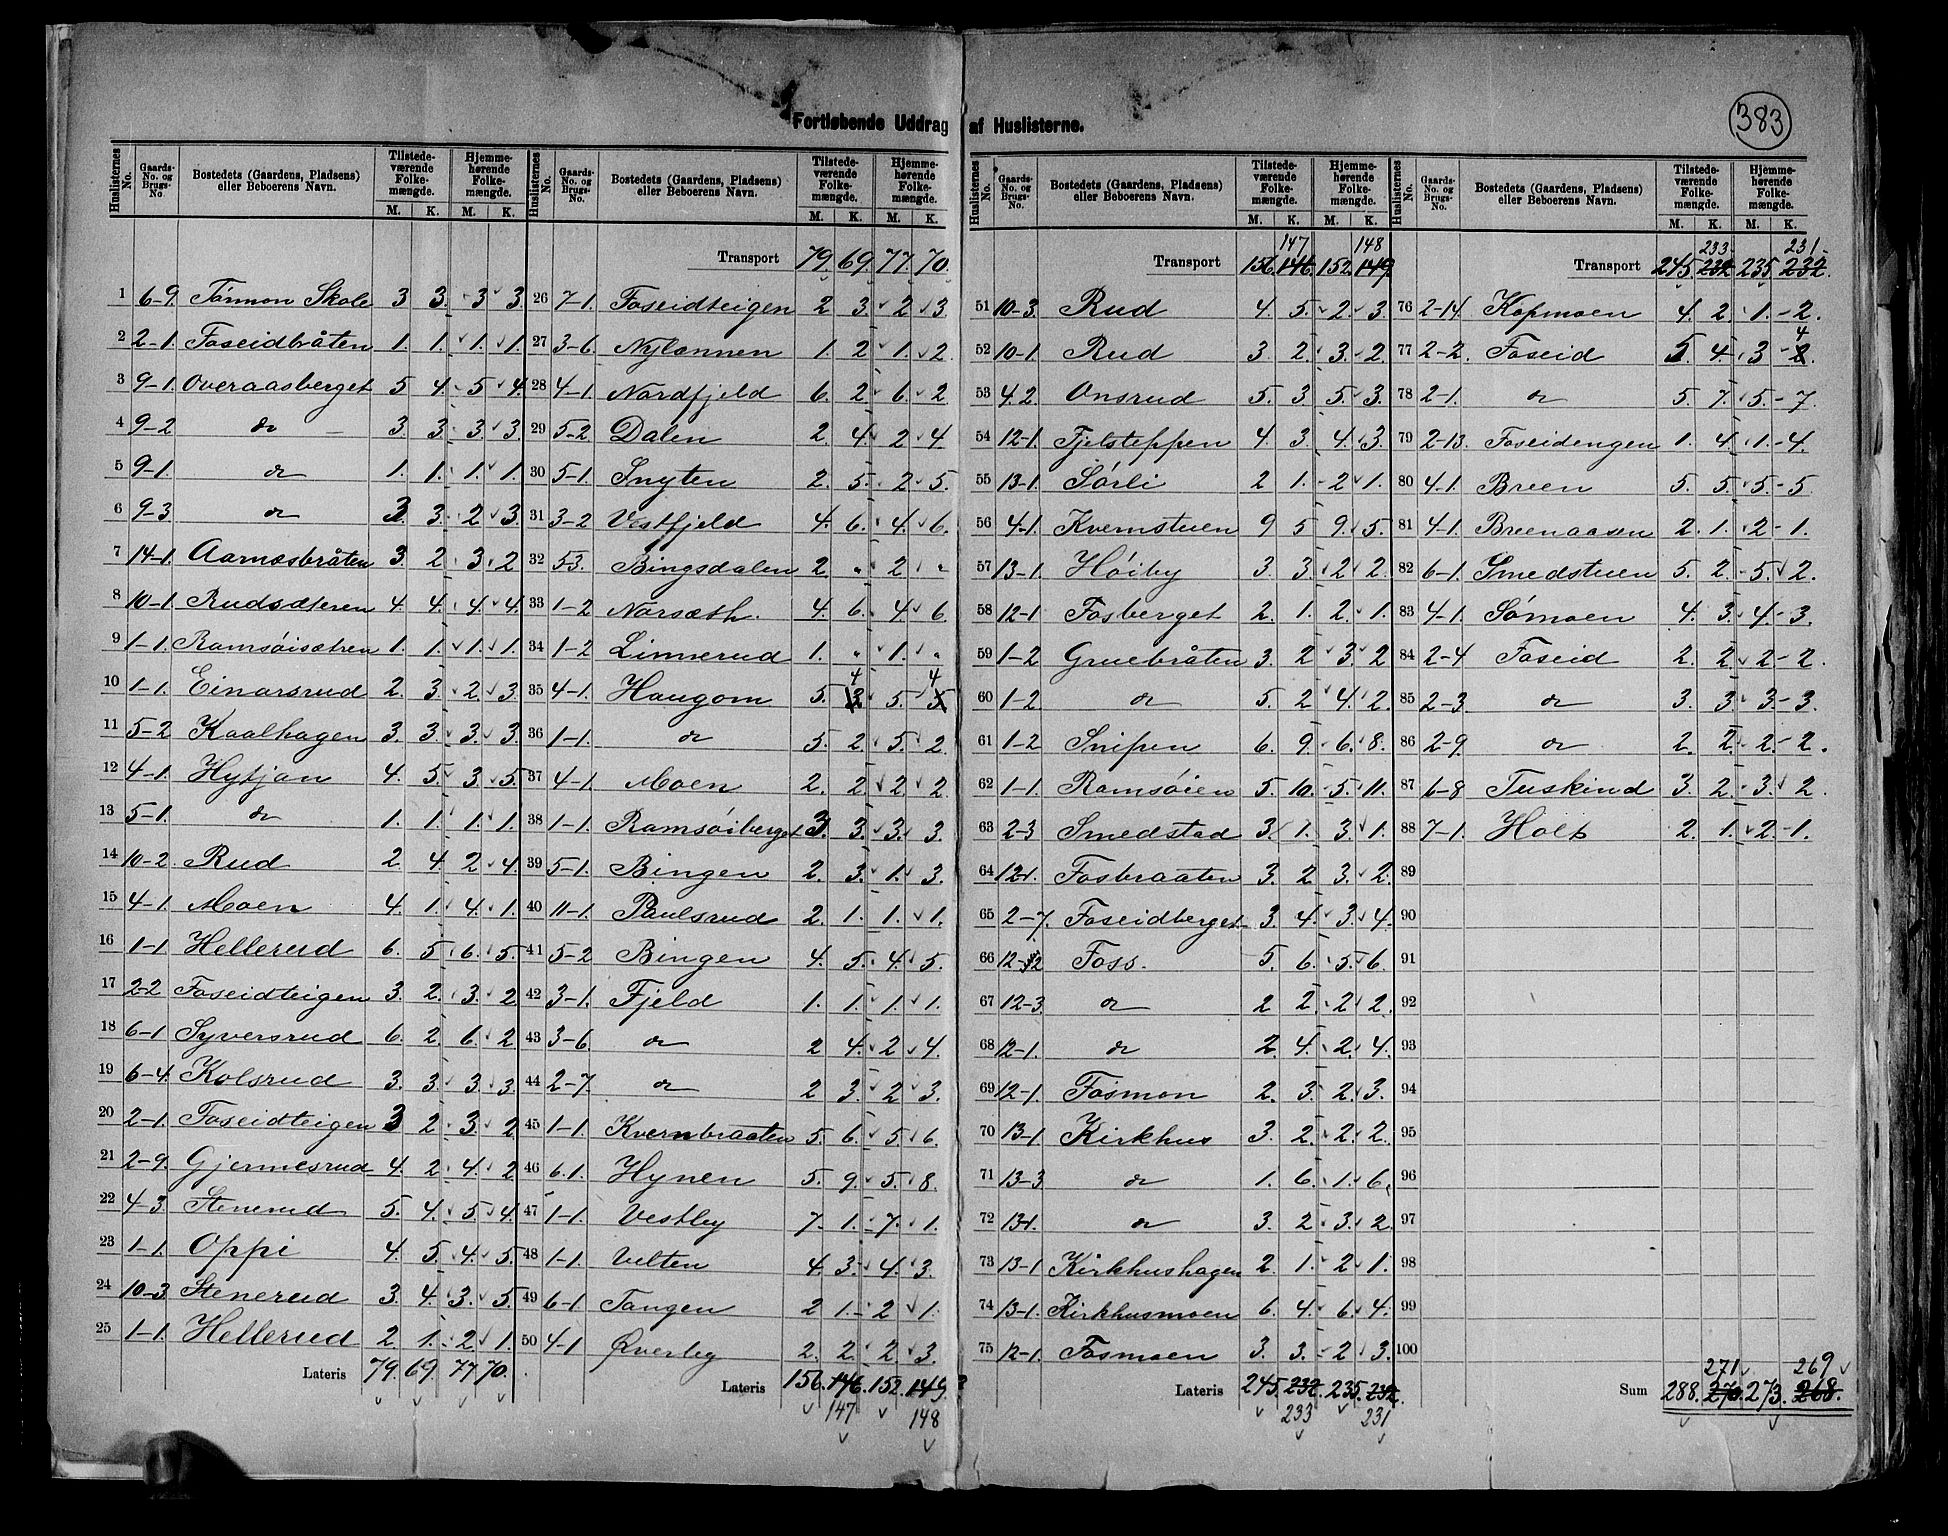 383
Fortløbende Uddrag af Huslisterne.
Huslisternes No. | Gaards-No. og Brugs-No. | Bostedets (Gaardens, Pladsens) eller Beboerens Navn. | Tilstedeværende Folkemængde. M. K. | Hjemmehørende Folkemængde. M. K.
1 6-9. Tørmon Skole 3 3. 3 3.
2 2-1. Foseidbråten 1. 1. 1. 1.
3 9-1. Overaasberget 5 4. 5 4.
4 9-2 do - 3. 3. 3. 3.
5 9-1. do 1. 1. 1. 1.
6 9-3 do 3. 3. 2 3.
7 14-1. Aarnæsbråten 3. 2. 3. 2
8 10-1 Rudsæteren 4. 4. 4. 4.
9 1-1. Ramsøisætren 1. 1. 1. 1.
10 1-1. Einarsrud 2. 3. 2. 3.
11 5-2 Kaalhagen 3. 3. 3. 3.
12 4-1. Hytjan 4. 5. 3. 5.
13 5-1. do 1. 1. 1. 1.
14 10-2. Rud 2. 4. 2 4.
15 4-1. Moen 4. 1. 4. 1.
16 1-1 Hellerud 6. 5 6. 5.
17 2-2 Foseidteigen 3. 2. 3. 2
18 6-1 Syversrud 6. 2. 6. 2
19 6-4 Kolsrud 3. 3. 3. 3
20 2-1. Foseidteigen 3 2 3. 2
21 2-9. Gjermesrud 4. 2. 4. 2
22 4-3. Stenerud 5. 4. 5. 4.
23 1-1 Oppi 4. 5. 4. 5.
24 10-3 Stenerud 3. 4. 3. 5.
25 1-1. Hellerud 2. 1. 2 1.
Lateris 79. 69. 77. 70.
Transport 79. 69. 77. 70.
26 7-1. Foseidteigen 2 3. 2 3.
27 3-6. Nylænnen 1. 2 1. 2.
28 4-1. Nordfjeld 6. 2 6. 2
29 5-2 Dalen 2. 4. 2 4
30 5-1. Snyten 2. 5. 2 5.
31 3-2 Vestfjeld 4. 6. 4. 6.
32 53. Bingsdalen 2. „ 2. „
33 1-2 Norsæth. 4. 6. 4 6
34 1-2 Linnerud 1. „ 1. „
35 4-1. Haugom 5. 4 5. 4
36 1-1. do 5. 2. 5. 2
37 4-1. Moen 2. 2 2 2
38 1-1. Ramsøiberget 3. 3. 3. 3.
39 5-1. Bingen 2. 3. 1. 3.
40 11-1. Paulsrud 2. 1. 1. 1.
41 5-2 Bingen 4. 5. 4. 5.
42 3-1. Fjeld 1. 1. 1. 1.
43 3-6. do 2 4. 2 4.
44 2-7. do 2 3. 2 3.
45 1-1. Kvernbraaten 5. 6. 5 6.
46 6.1. Hynen 5. 9. 5. 8.
47 1-1. Vestby 7. 1. 7. 1.
48 1-1. Velten 4. 3. 4. 3.
49 6-1 Tangen 2 1. 2 1.
50 4-1 Øverby 2. 2. 2. 3.
Lateris 156. 146. 152. 149.
147 148
147 148
Transport 156. 146. 152. 149
51 10-3. Rud 4. 5. 2. 3.
52 10-1. Rud 3. 2. 3. 2.
53 4.2. Onsrud 5. 3. 5. 3.
54 12-1. Fjelsteppen 4. 3. 4. 3.
55 13-1. Sørli 2 1. 2 1.
56 4-1. Kvernstuen 9 5 9. 5.
57 13-1. Høiby 3. 3. 2 2.
58 12-1 Fosberget 2. 1. 2. 1.
59 1-2 Gruebråten 3. 2 3 2
60 1-2. do 5. 2 4. 2.
61 1-2 Snipen 6. 9. 6. 8.
62 1-1. Ramsøien 5. 10. 5. 11.
63 2-3 Smedstad 3. 1. 3. 1.
64 12-1. Fosbraaten 3. 2 3. 2.
65 2-7. Foseidberget 3. 4. 3. 4.
66 12-2 Foss. 5. 6. 5. 6.
67 12-3. do 2 2. 2 2.
68 12-1. do 2. 4. 2. 4.
69 12-1. Fosmon 2. 3. 2. 3.
70 13-1. Kirkhus 3. 2. 2. 2.
71 13-3 do 1. 6. 1. 6.
72 13-1. do 3. 2 3. 2.
73 13-1. Kirkhushagen 2. 1. 2 1.
74 13-1. Kirkhusmoen 6. 4. 6. 4.
75 12-1. Fosmoen 3. 3. 2 3.
Lateris 245. 232. 235. 232.
233 231
233. 231
Transport 245. 232. 235. 232.
76 2-14. Kopmoen 4. 2. 1. 2.
77 2-2. Foseid 5 4. 3 4
78 2-1. do 5. 7. 5. 7.
79 2-13. Foseidengen 1. 4. 1. 4.
80 4-1. Breen 5. 5. 5. 5.
81 4-1. Breenaasen 2. 1. 2 1.
82 6-1. Smedstuen 5. 2. 5. 2.
83 4-1. Sømoen 4. 3. 4. 3.
84 2-4 Foseid 2. 2. 2 2.
85 2-3. do 3. 3 3. 3.
86 2-9. do 2. 2. 2. 2.
87 6-8 Tuskind 3. 2. 3. 2.
88 7-1. Holt 2. 1. 2. 1.
89
90
91
92
93
94
95
96
97
98
99
100
271 269
Sum 288. 270. 273. 268.